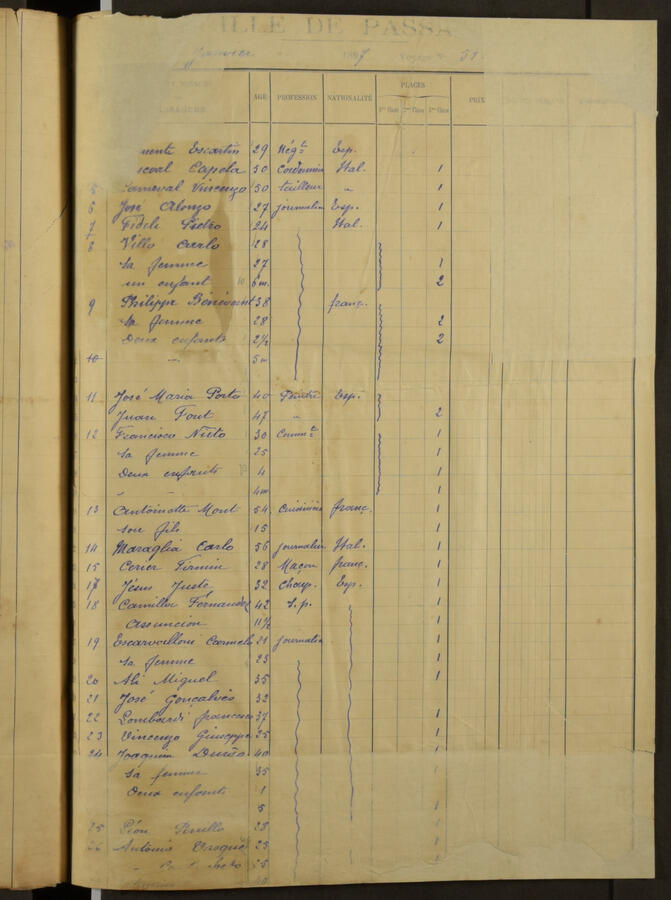 ILLE DE PASSA
Janvier 1897 Voyage 51
PLACES
AGE PROFESSION NATIONALITÉ 1re Classe 2me Classe 3me Classe PRIX
Escartin 29 Négt Esp.
Capela 50 Cordonnier Ital. 1
5 Carneval Vincenzo 50 tailleur " 1
6 José Alonzo 27 journalier Esp. 1
7 Fideli Pietro 24 Ital. 1
8 Villo Carlo 28
sa femme 27 1
un enfant 10 6m. 2
9 Philippe Bénévent 38 franç.
sa femme 28 2
Deux enfants 2½ 2
10 " 5m
11 José Maria Porto 40 Peintre Esp.
Juan Font 47 " 2
12 Francisco Nieto 30 Commt 1
sa femme 25 1
Deux enfants 4 1
" 4m 1
13 Antoinette Mont 54 Cuisinière franç. 1
son fils 15 1
14 Maraglia Carlo 56 journalier Ital. 1
15 Firmin 28 Maçon franç. 1
17 Jésus Juste 32 Chap. Esp. 1
18 Camilla Fernandez 42 s.p. 1
Asuncion 11½ 1
19 Carmelo 21 journalier 1
sa femme 23 1
20 Ali Miguel 35 1
21 José Gonçalvès 32
22 Lombardi francesco 37 1
23 Vincenzo Giuseppe 25 1
24 Joaquim 40 1
sa femme 35 1
Deux enfants 1 1
5 1
25 Léon 28 1
Antonio 23 1
25 1
40